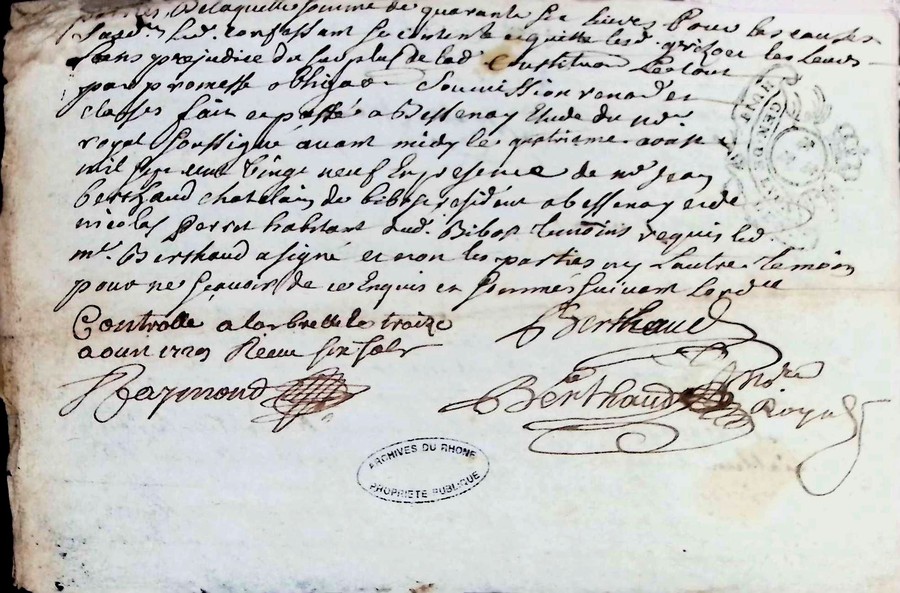 de laquelle somme de quarante six livres pour les causes
confessant se contente et quitte lesd. les leurs
sans prejudice du surplus de lad. constitution le tout
par promesse obligaon soumission renaon et
clauses fait et passé a Bessenay Etude du no.re
royal soussigné avant midy le quatrieme aoust
mil sept cent vingt neuf En presence de mr Jean
berthaud chatelain de bibost resident a bessenay et de
nicolas perret habitant aud. Bibost temoins requis led.
mr. Berthaud a signé et non les parties ny l'autre temoin
pour ne sçavoir de ce Enquis et sommés suivant lord.ce
Controllé a larbresle le treize
aoust 1729 Receu six sols
Berthaud
Raymond
Berthaud No.re Royal
GEN DE
ARCHIVES DU RHONE
PROPRIETE PUBLIQUE